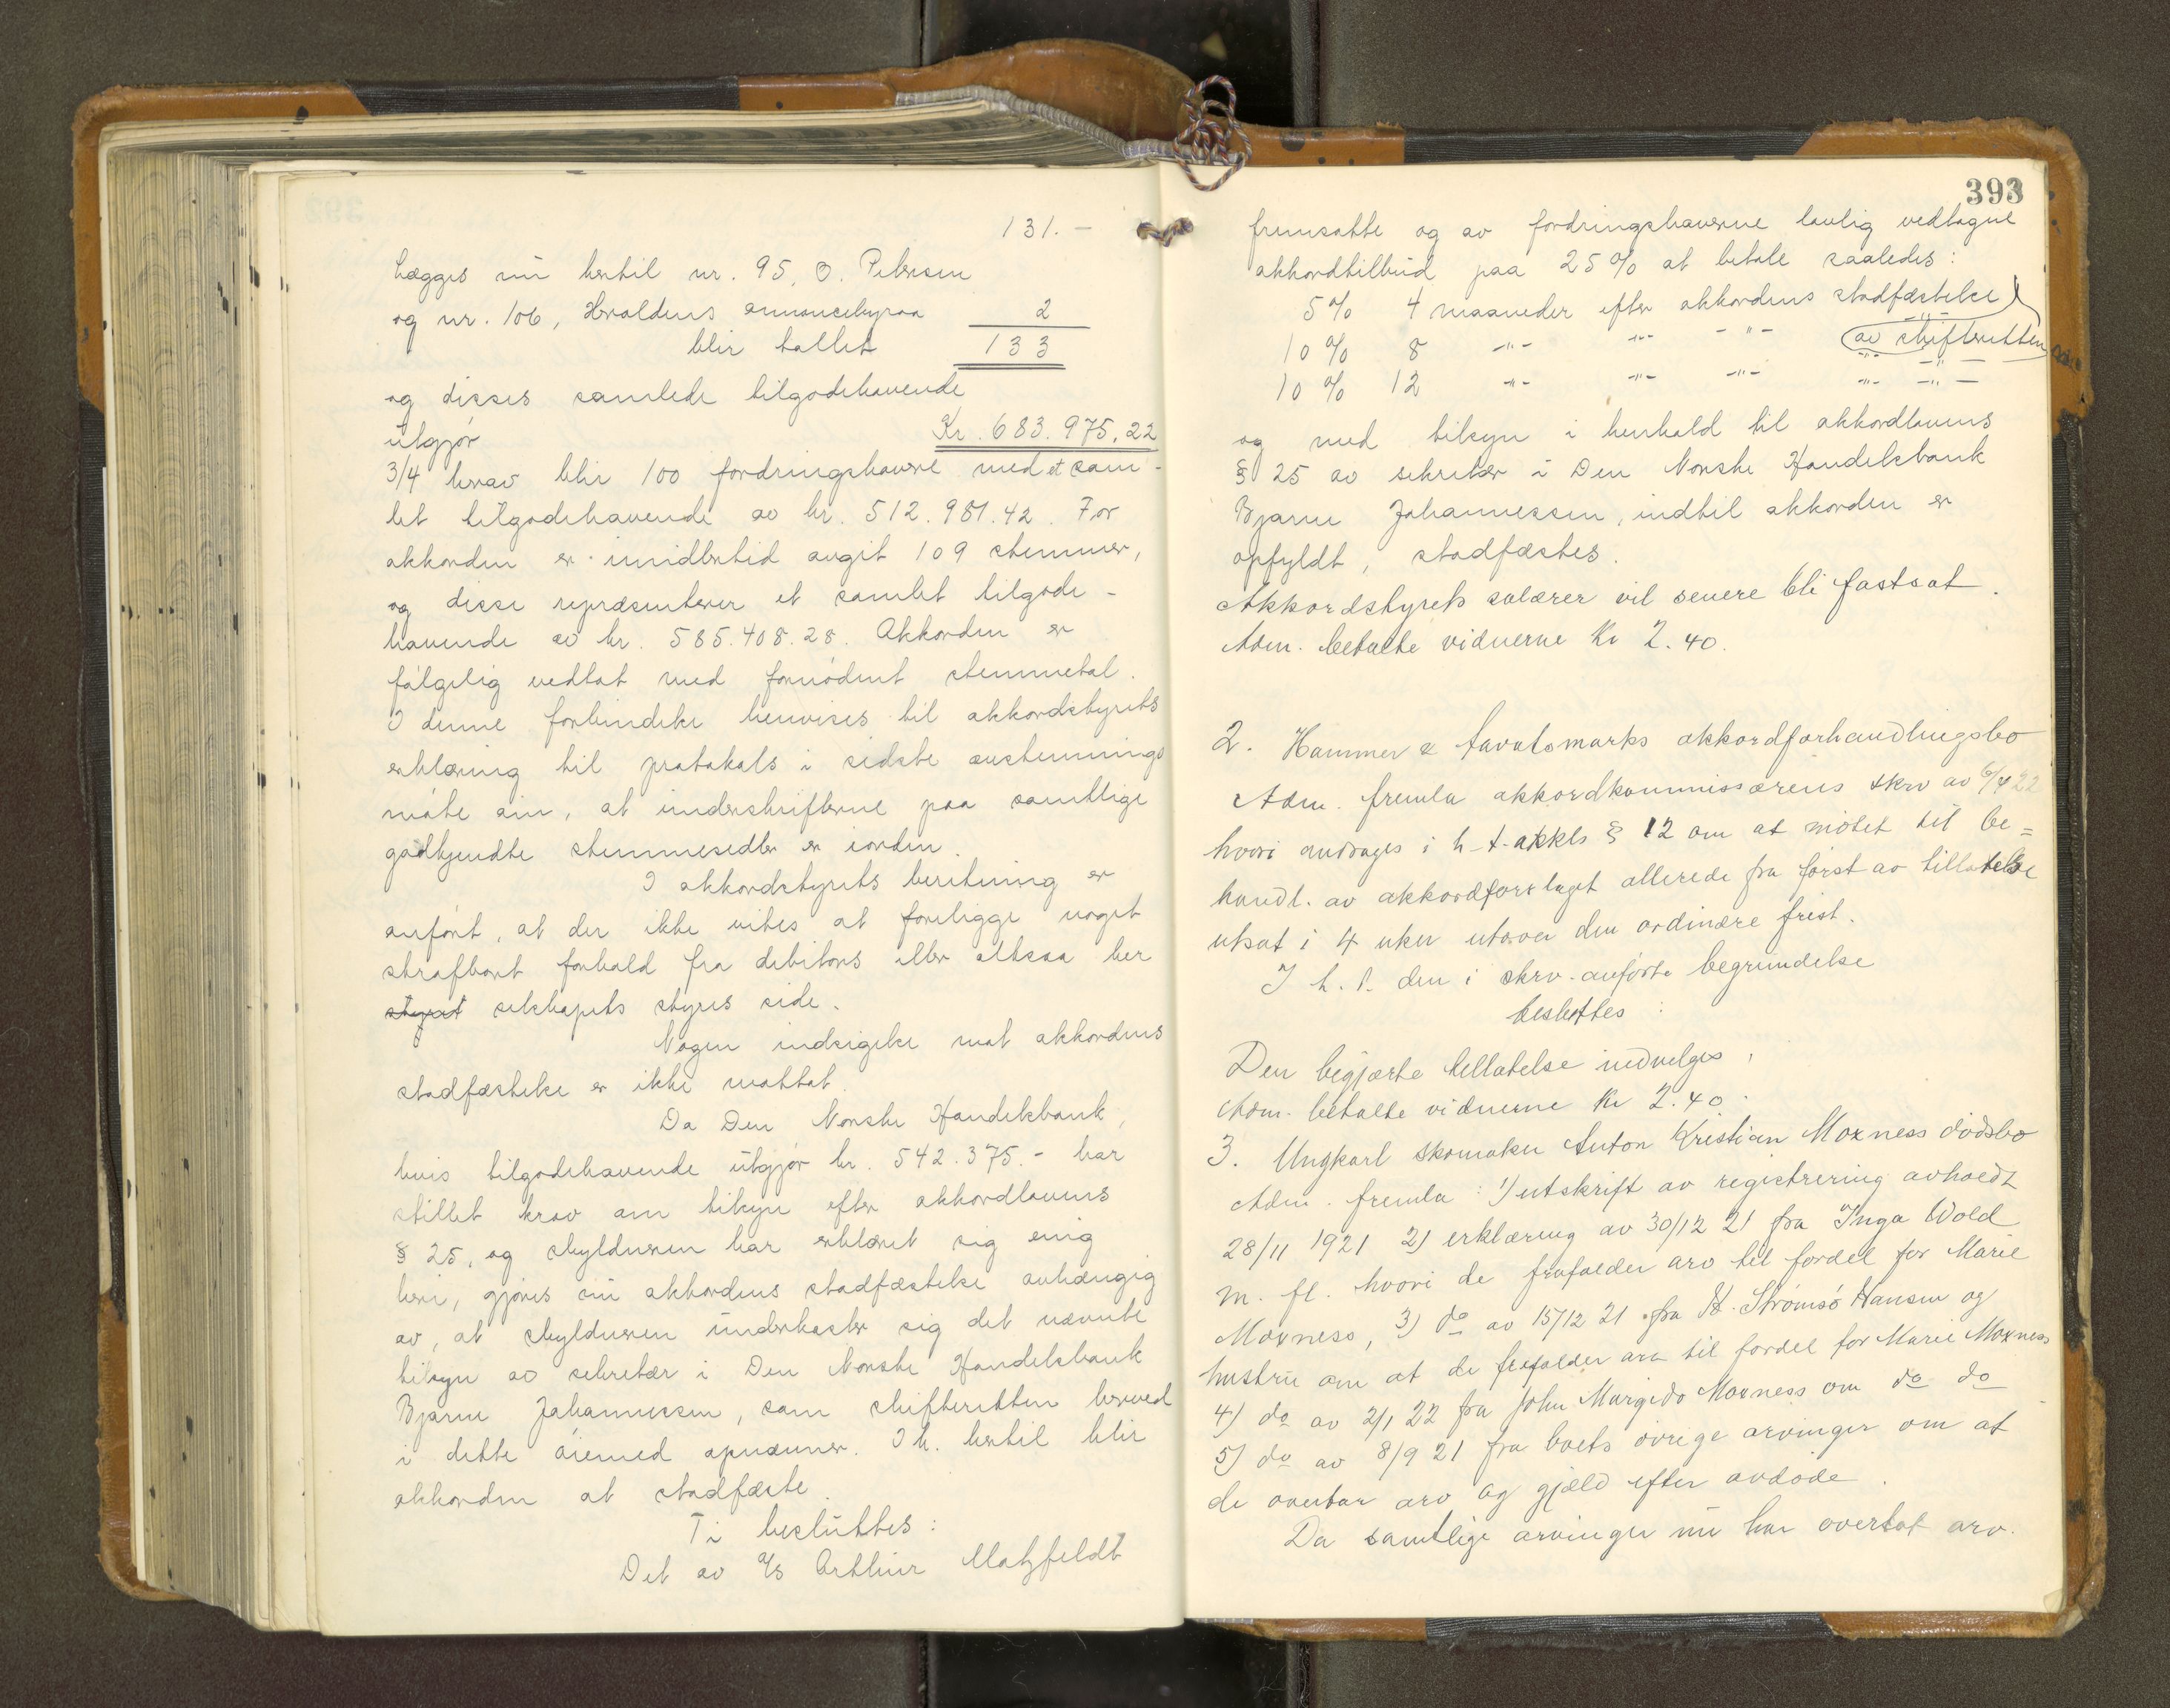 131.-
Lægges nu hertil nr. 95, O. Petersen
og nr. 106, Heroldens annoncebyraa 2
blir tallet 133
og disses samlede tilgodehavende
utgjør Kr. 683.975,22
3/4 herav blir 100 fordringshavere med et sam-
let tilgodehavende av kr. 512.981.42. For
akkorden er imidlertid avgit 109 stemmer,
og disse repræsenterer et samlet tilgode-
havende av kr. 585.408.28. Akkorden er
følgelig vedtat med fornødent stemmetal.
I denne forbindelse henvises til akkordstyrets
erklæring til protokols i sidste avstemnings
møte om, at underskrifterne paa samtlige
godkjendte stemmesedler er iorden.
I akkordstyrets beretning er
anført, at der ikke vites at foreligge noget
strafbart forhold fra debitors eller altsaa her
styret selskapets styres side.
Nogen indsigelse mot akkordens
stadfæstelse er ikke mottat.
Da Den Norske Handelsbank,
hvis tilgodehavende utgjør kr. 542.375.- har
stillet krav om tilsyn efter akkordlovens
§ 25, og skyldneren har erklæret sig enig
heri, gjøres nu akkordens stadfæstelse avhængig
av, at skyldneren underkaster sig det nævnte
tilsyn av sekretær i Den Norske Handelsbank
Bjarne Johannessen, som skifteretten herved
i dette øiemed opnævner. I h. hertil blir
akkorden at stadfæste.
Ti besluttes:
Det av A/S Arthur Matzfeldt
393
fremsatte og av fordringshaverne lovlig vedtagne
akkordtilbud paa 25% at betale saaledes:
5% 4 maaneder efter akkordens stadfæstelse
av skifteretten
10% 8 -"- -"- -"- -"- -"-
10% 12 -"- -"- -"- -"- -"-
og med tilsyn i henhold til akkordlovens
§ 25 av sekretær i Den Norske Handelsbank
Bjarne Johannessen, indtil akkorden er
opfyldt, stadfæstes.
Akkordstyrets salærer vil senere bli fastsat.
Adm. betalte vidnerne Kr 2.40.
2. Hammer & akkordforhandlingsbo
Adm. fremla akkordkommissærens skrv av 6/4 22
hvori andrages i h-t. akkls § 12 om at møtet til be=
handl. av akkordforslaget allerede fra først av tillatelse
utsat i 4 uker utover den ordinære frist.
I h. t. den i skrv. anførte begrundelse
besluttes:
Den begjærte tillatelse indvilges.
Adm. betalte vidnerne Kr 2.40.
3. Ungkarl skomaker Anton Kristian Moxness dødsbo
Adm. fremla: 1) utskrift av registrering avholdt
28/11 1921 2) erklæring av 30/12 21 fra Inga Wold
m. fl. hvori de frafalder arv til fordel for Marie
Moxness, 3) do av 15/12 21 fra H. Strømsø Hansen og
hustru om at de frafalder arv til fordel for Marie Moxness
4) do av 2/1 22 fra John Margido Moxness om do do
5) do av 8/9 21 fra boets øvrige arvinger om at
de overtar arv og gjæld efter avdøde.
Da samtlige arvinger nu har overtat arv.